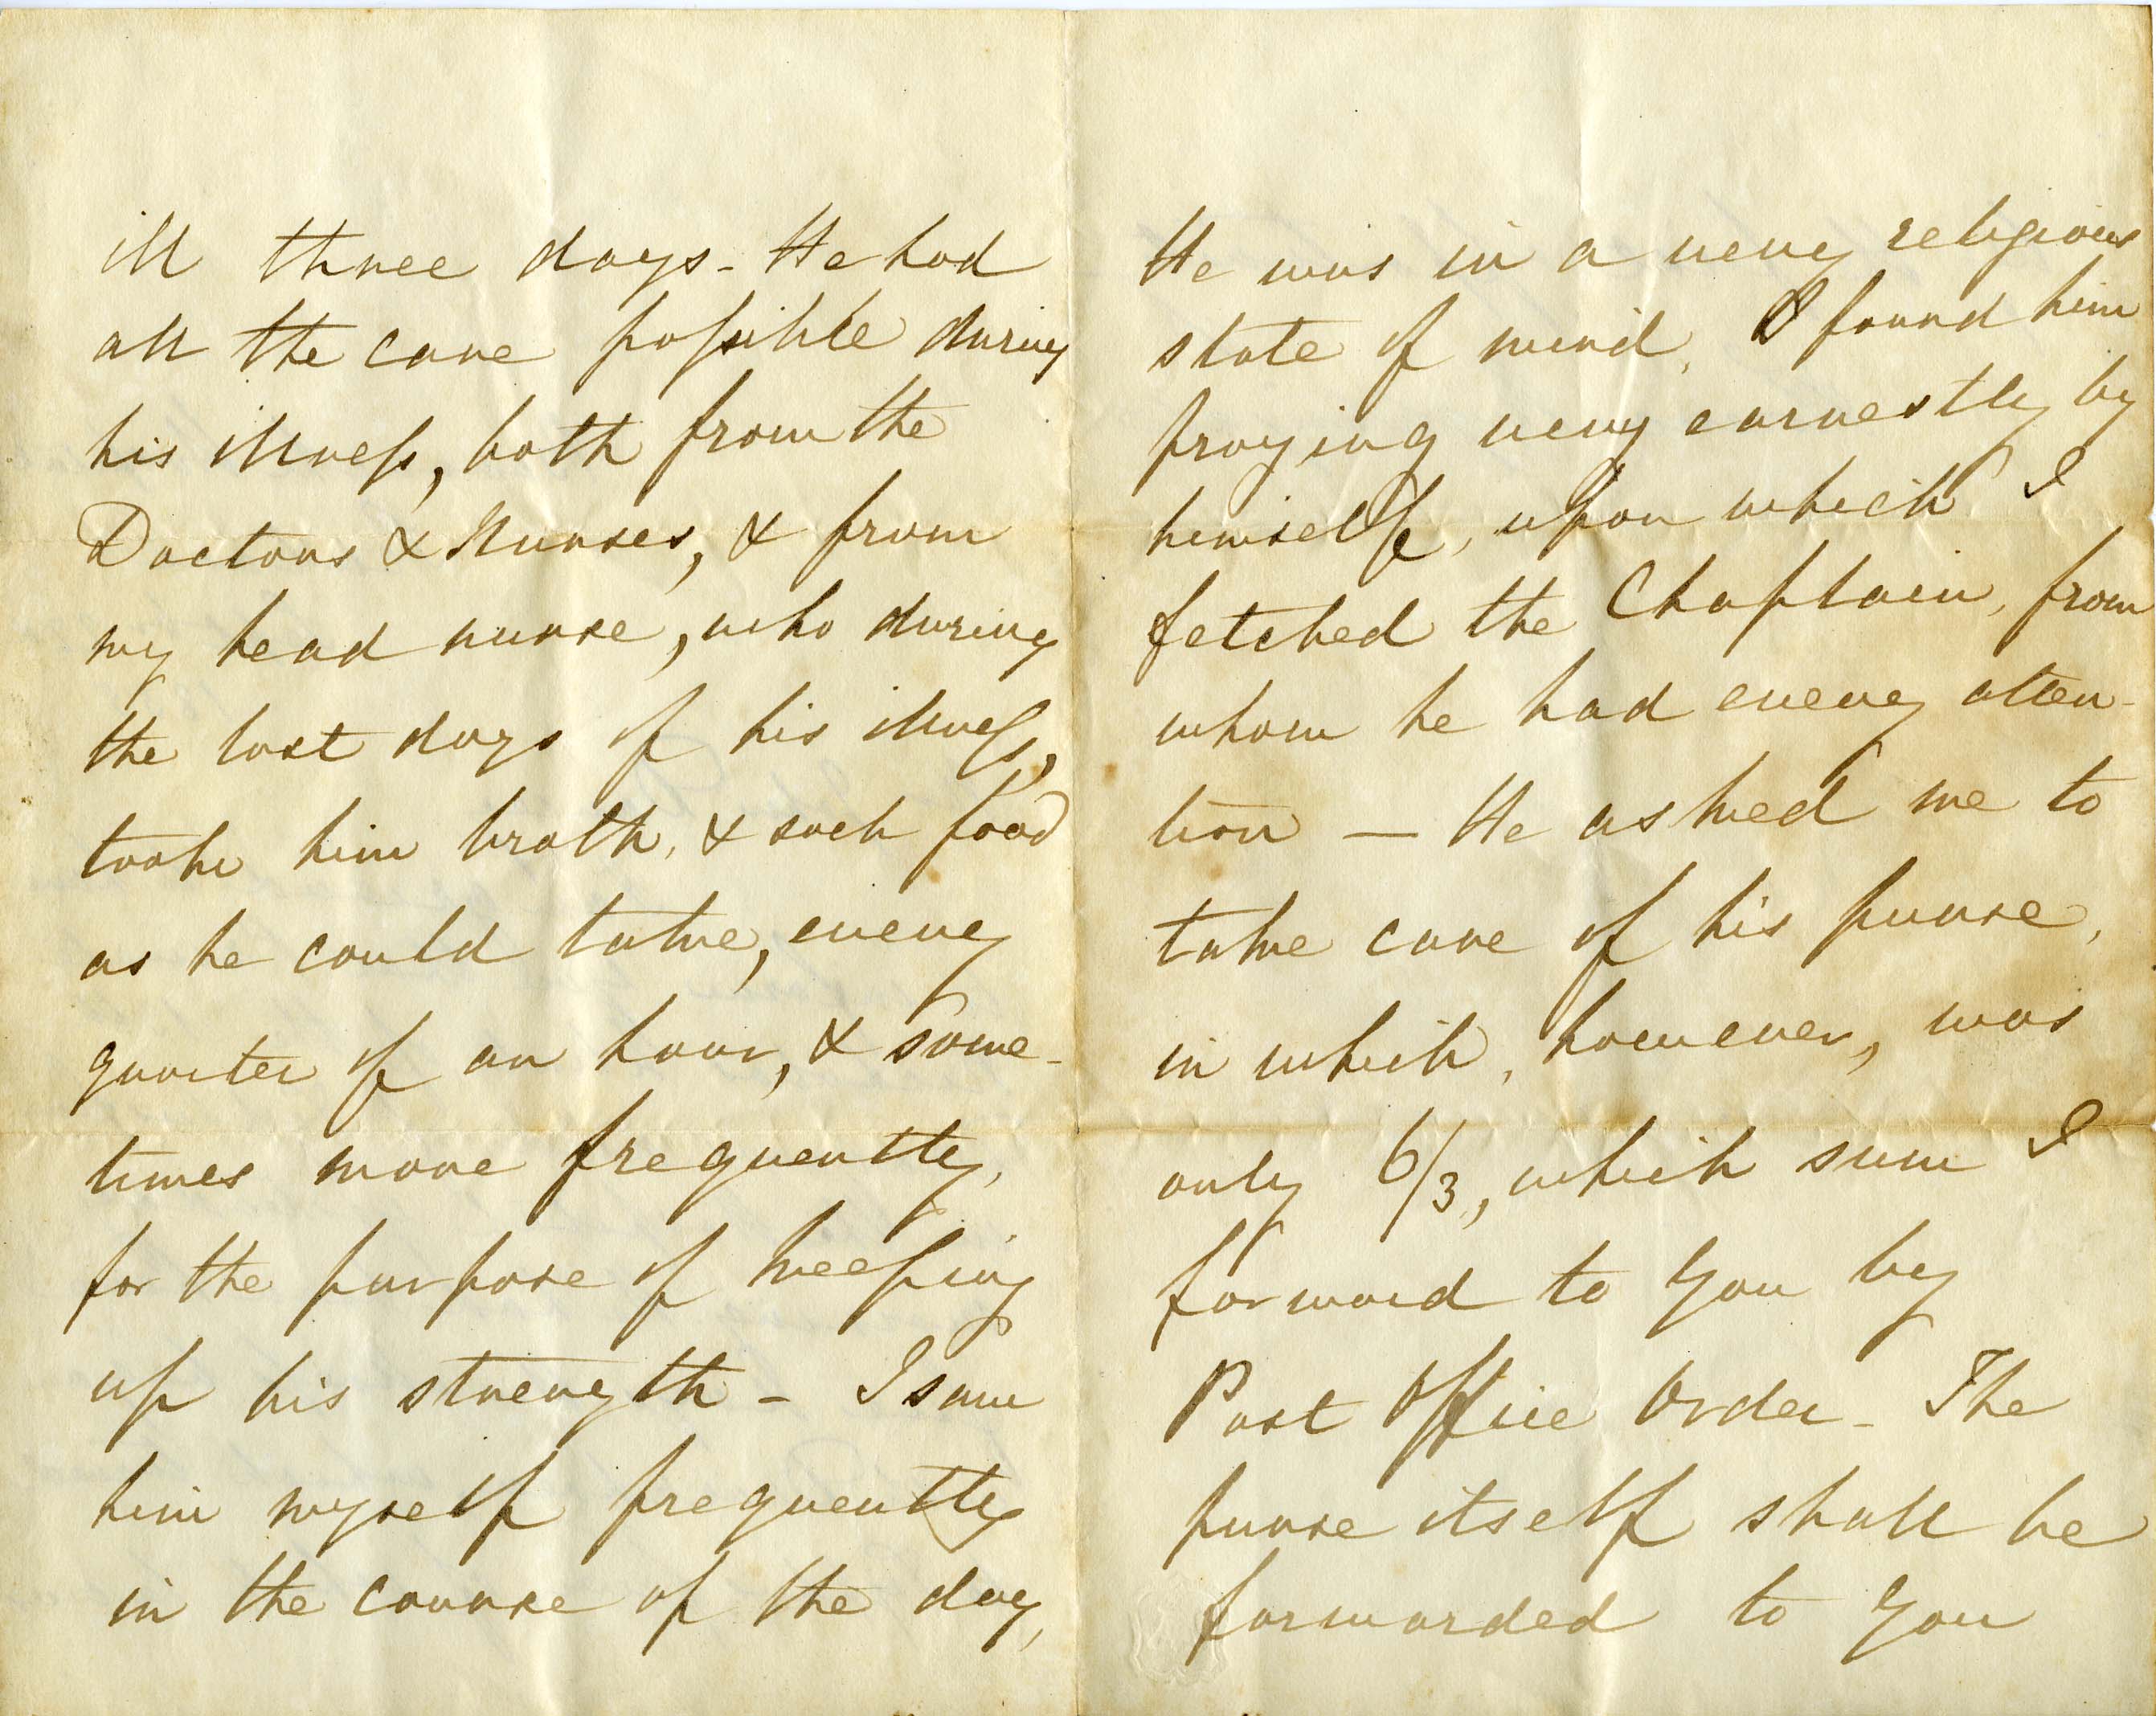 ill three days - He had
all the care possible during
his illness, both from the
Doctors & Nurses, & from
my head nurse, who during
the last days of his illness,
took him broth, & such food
as he could take, every
quarter of an hour, & some-
times more frequently,
for the purpose of keeping
up his strength - I saw
him myself frequently
in the course of the day,
He was in a very religious
state of mind, I found him
praying very earnestly by
himself, upon which I
fetched the Chaplain, from
whom he had every atten-
tion — He asked me to
take care of his purse,
in which, however, was
only 6/3, which sum I
forward to you by
Post Office Order - The
purse itself shall be
forwarded to you